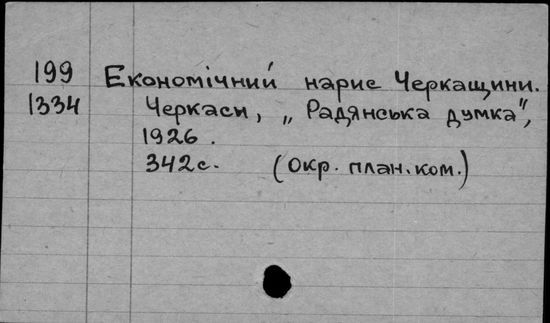 199 Економічний нарис Черкащини.
1334 Черкаси, „Радянська думка“,
1926.
342с. (Окр. план. ком.)